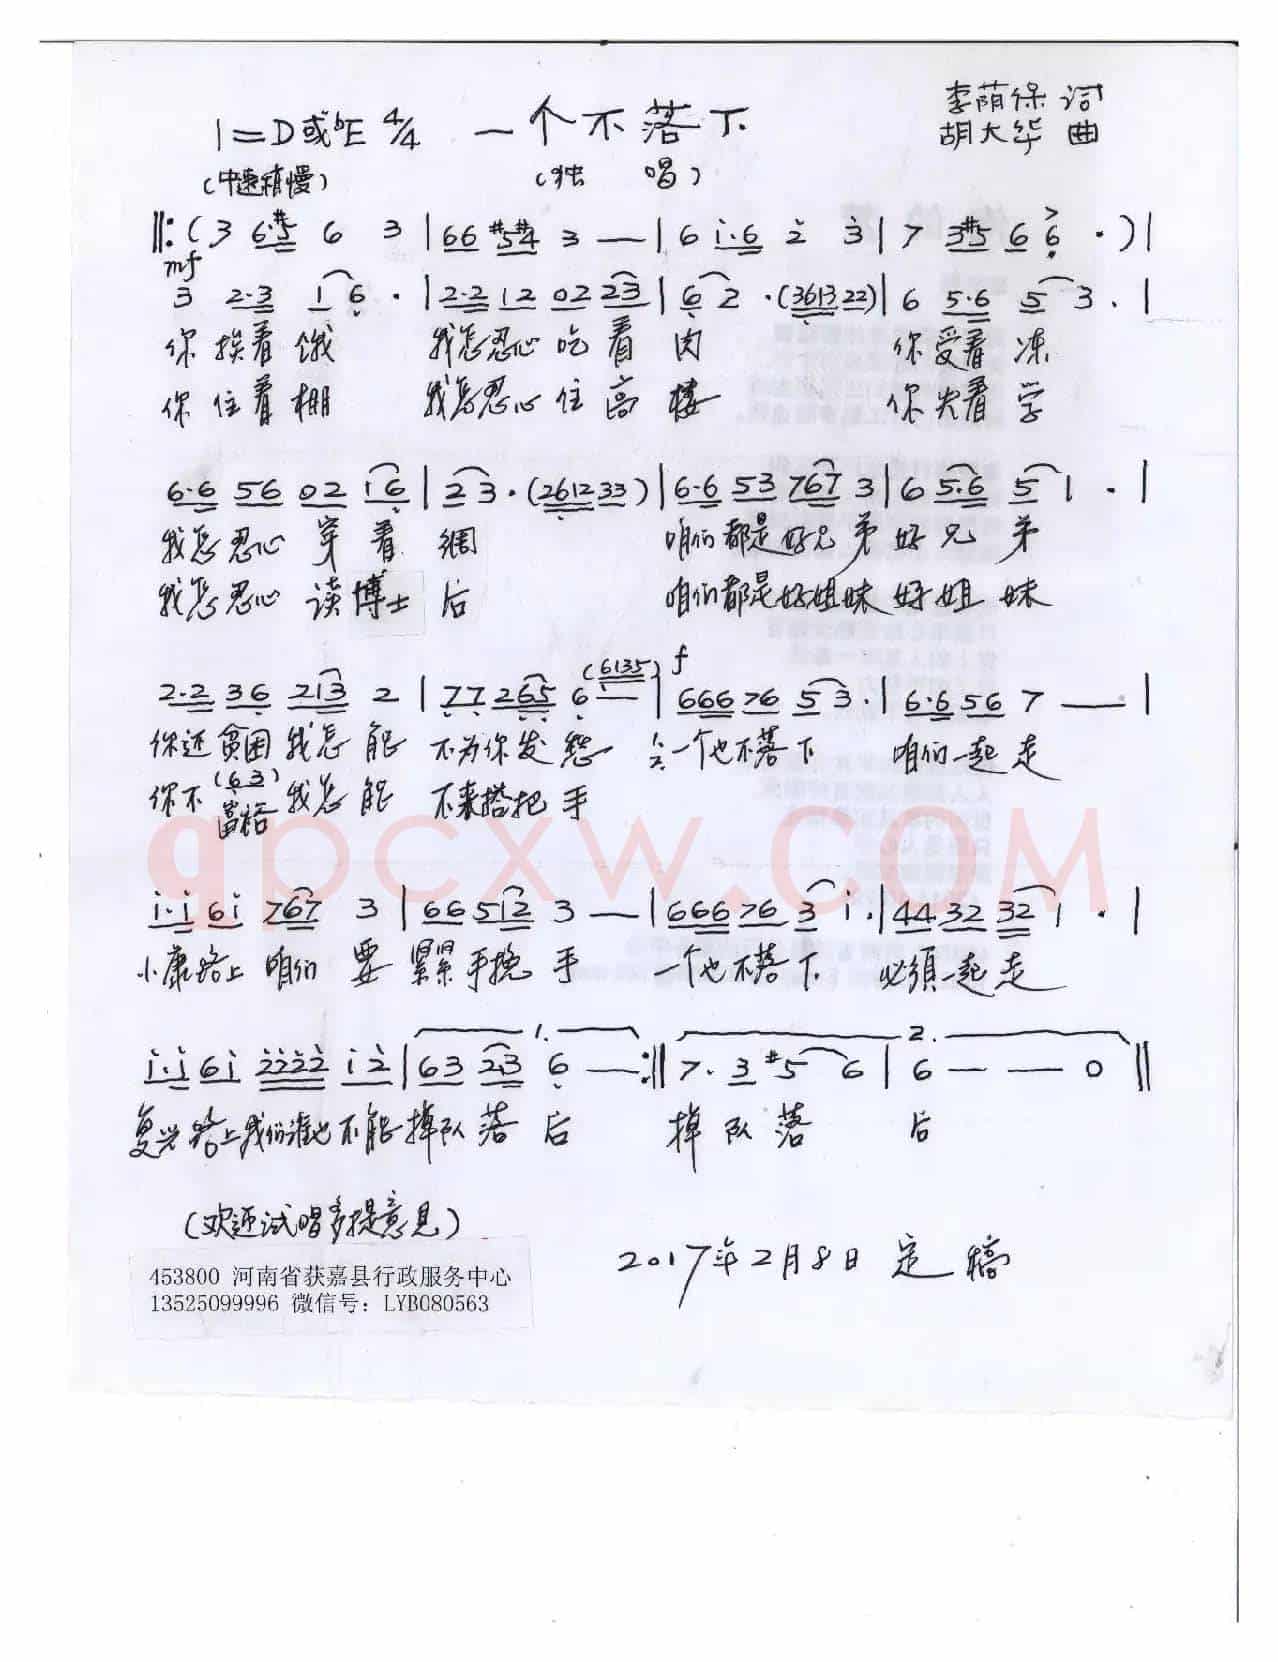 1=D或bE 4/4 一个不落下 李荫保 词
胡大华 曲
(中速稍慢) (独 唱)
‖: ( 3 6·#5 6 3 | 66 #5#4 3 — | 6 i·6 2 3 | 7 3#5 6 6 · ) |
mf
3 2·3 1 6 · | 2·2 12 02 23 | 6 2 · (361322) | 6 5·6 5 3 · |
你 挨着 饿 我怎忍心 吃 着 肉 你 受着 冻
你 住着 棚 我怎忍心 住 高 楼 你 失着 学
6·6 56 02 16 | 2 3 · (261233) | 6·6 53 767 3 | 6 5·6 5 1 · |
我怎忍心 穿 着 绸 咱们都是好兄弟 好 兄 弟
我怎忍心 读博士 后 咱们都是好姐妹 好 姐 妹
(6135) f
2·2 36 213 2 | 77 265 6 — | 666 76 5 3 · | 6·6 56 7 — |
你还贫困 我怎 能 不为你发愁 一个也不落下 咱们一起 走
(63)
你不富裕 我怎 能 不来搭把手
i·i 6i 767 3 | 66 512 3 — | 666 76 3 i · | 44 32 32 1 · |
小康路上 咱们 要 紧紧手挽 手 一个也不落 下 必须一起 走
1. 2.
i·i 6i 2222 i2 | 63 23 6 — :‖ 7· 3 #5 6 | 6 — — 0 ‖
复兴路上我们谁也不能掉队 落 后 掉 队 落 后
(欢迎试唱多提意见)
2017年2月8日 定 稿
453800 河南省获嘉县行政服务中心
13525099996 微信号: LYB080563
qpcxw.COM